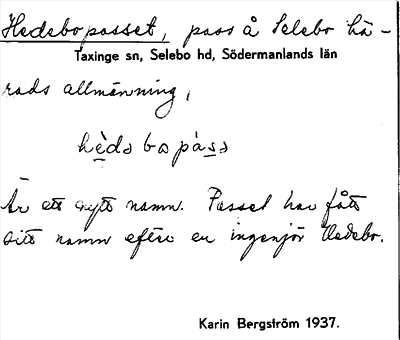 Hedebopasset, pass å Selebo hä-
Taxinge sn, Selebo hd, Södermanlands län
rads allmänning,
hèds bo páss
Är ett nytt namn. Passet har fått
sitt namn efter en ingenjör Hedebo.
Karin Bergström 1937.